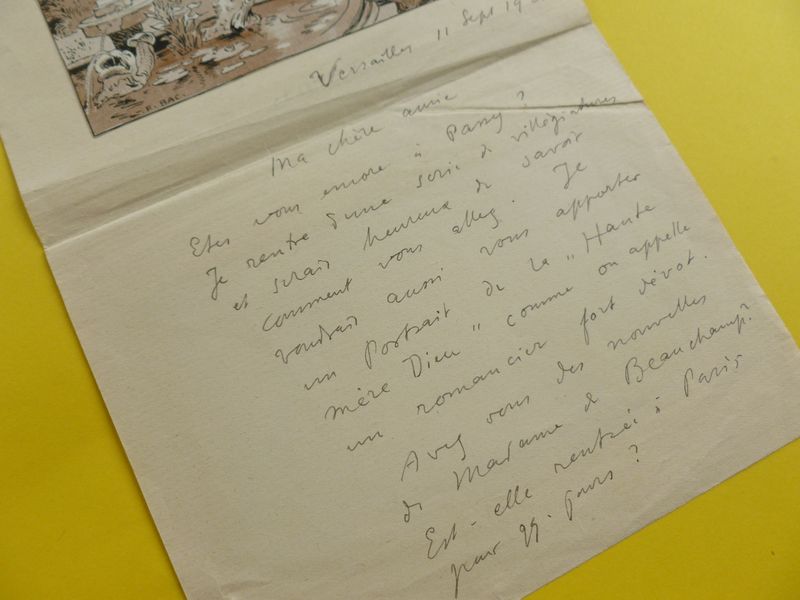 F. BAC
Versailles 11 Sept 19
Ma chère amie
Etes vous encore à Passy ?
Je rentre d'une série de villégiatures
et serais heureux de savoir
comment vous allez. Je
voudrais aussi vous apporter
un Portrait de la „Haute
mère Dieu" comme on appelle
un romancier fort dévot.
Avez vous des nouvelles
de Madame de Beauchamp ?
Est-elle rentrée à Paris
pour qq. jours ?